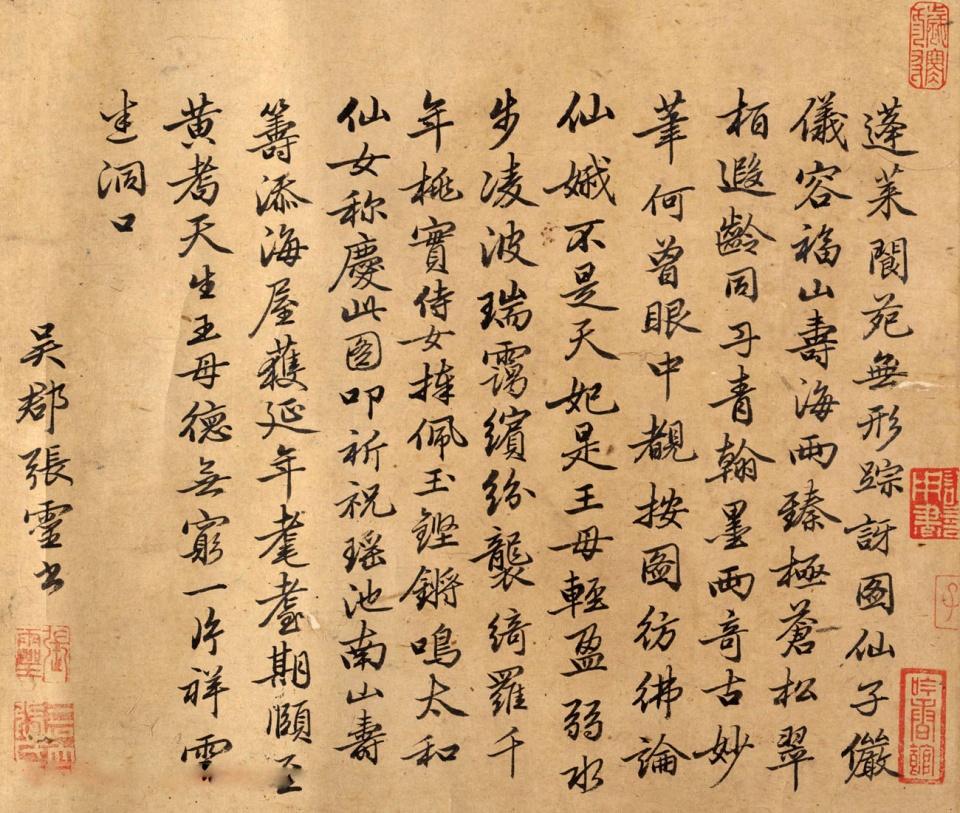 蓬莱閬苑無形踪訝图仙子儼
儀容福山壽海兩臻極蒼松翠
栢遐齡同丹青翰墨兩奇古妙
筆何曾眼中覩按图彷彿論
仙娥不是天妃是王母輕盈弱水
步凌波瑞靄繽紛襲綺羅千
年桃實侍女捧佩玉鏗鏘鳴太和
仙女称慶此图叩祈祝瑶池南山壽
籌添海屋獲延年耄耋期頤
黄耇天生王母德无窮一片祥雲
洞口
吴郡張靈书